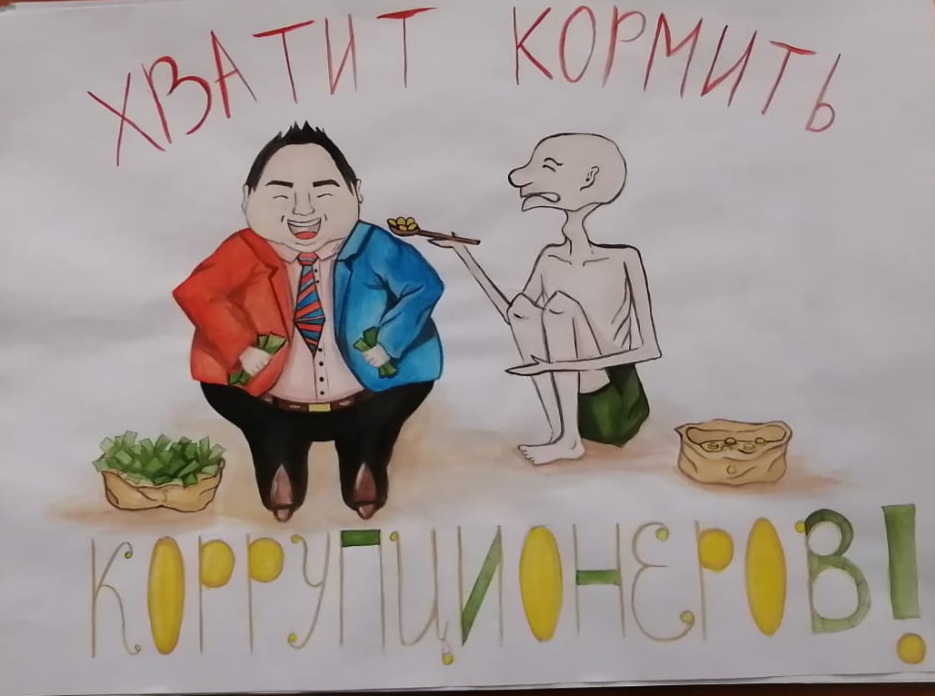 ХВАТИТ КОРМИТЬ
КОРРУПЦИОНЕРОВ!